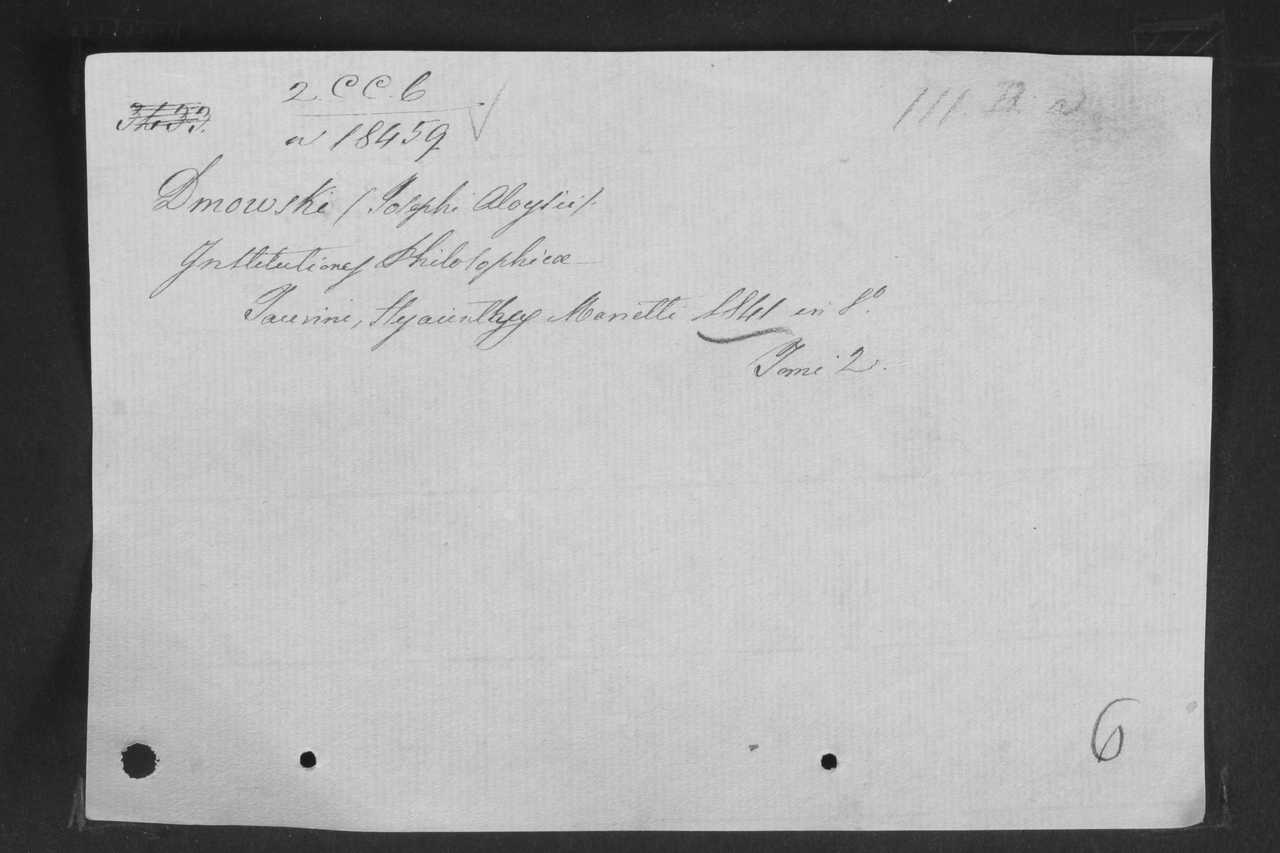 2. C C. 6
a 18459
Dmowski (Josephi Aloysii)
Institutiones Philosophicæ
Taurini, Hyacinthus Marietti 1841 in 8º.
Tomi 2.
6